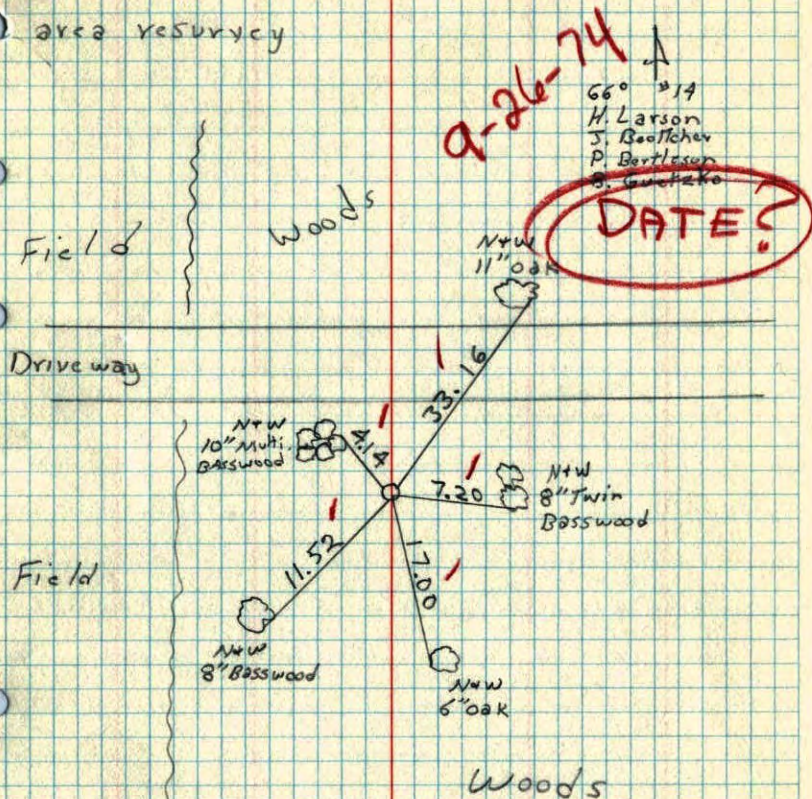 area resurvey
9-26-74
66° #14
H. Larson
J. Boettcher
P. Bartleson
B. Guetzko
DATE?
Woods
Field
N+W
11" oak
Driveway
33.16
N+W
10" Multi.
BAsswood
4.14
7.20
N+W
8" Twin
Basswood
11.52
17.00
Field
N+W
8" Basswood
N+W
6" oak
Woods